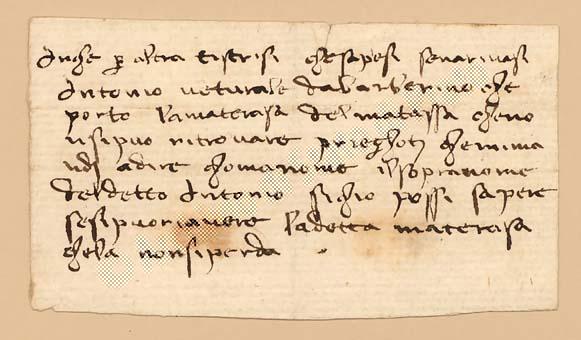 Anche p altra ti scrisi che sapesi se vari vasi
Antonio veturale da barberino che
porto la materasa del matassa che no
si può ritrovare prieghoti che mi ma
ndi a dire chome a nome il sopranome
del detto Antonio sichio possi sapere
se si può riavere la detta materasa
che la non si perda